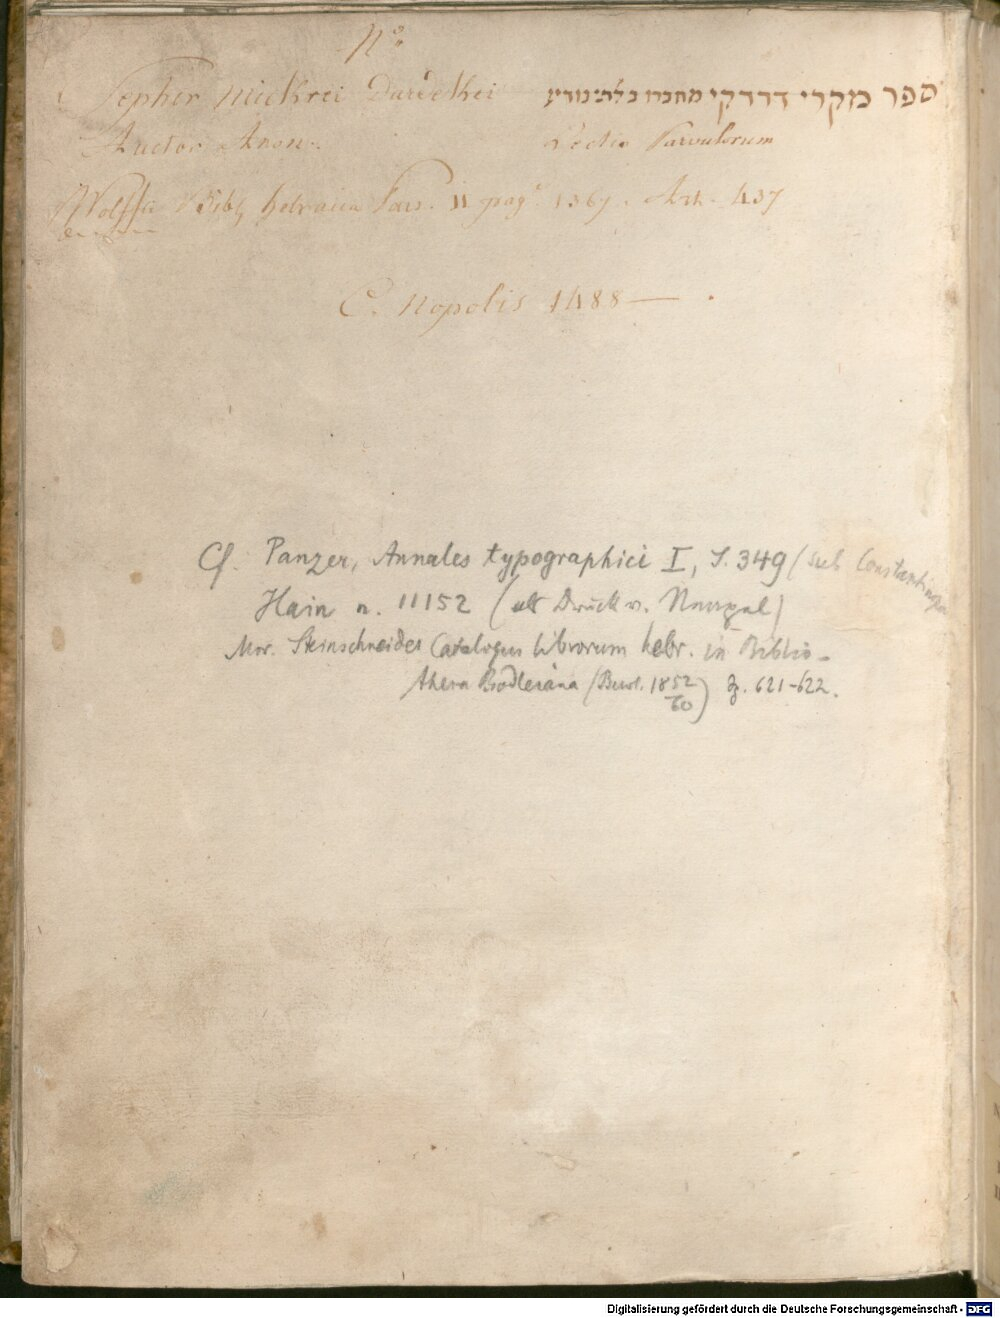 Nº
Sepher Mickrei Dardekei ספר מקרי דרדקי מחברו בלתי נודיע
Auctor Anon. Lectio Parvulorum
Wolffii Bibl. hebraica Pars. II pag. 1367. Art. 437
C. Nopolis 1488 — .
Cf. Panzer, Annales typographici I, S. 349 (sub Constantinopel
Hain n. 11152 (als Druck v. Neapel)
Mor. Steinschneider Catalogus librorum hebr. in Biblio-
theca Bodleiana (Berol. 1852/60) p. 621-622.
Digitalisierung gefördert durch die Deutsche Forschungsgemeinschaft - DFG